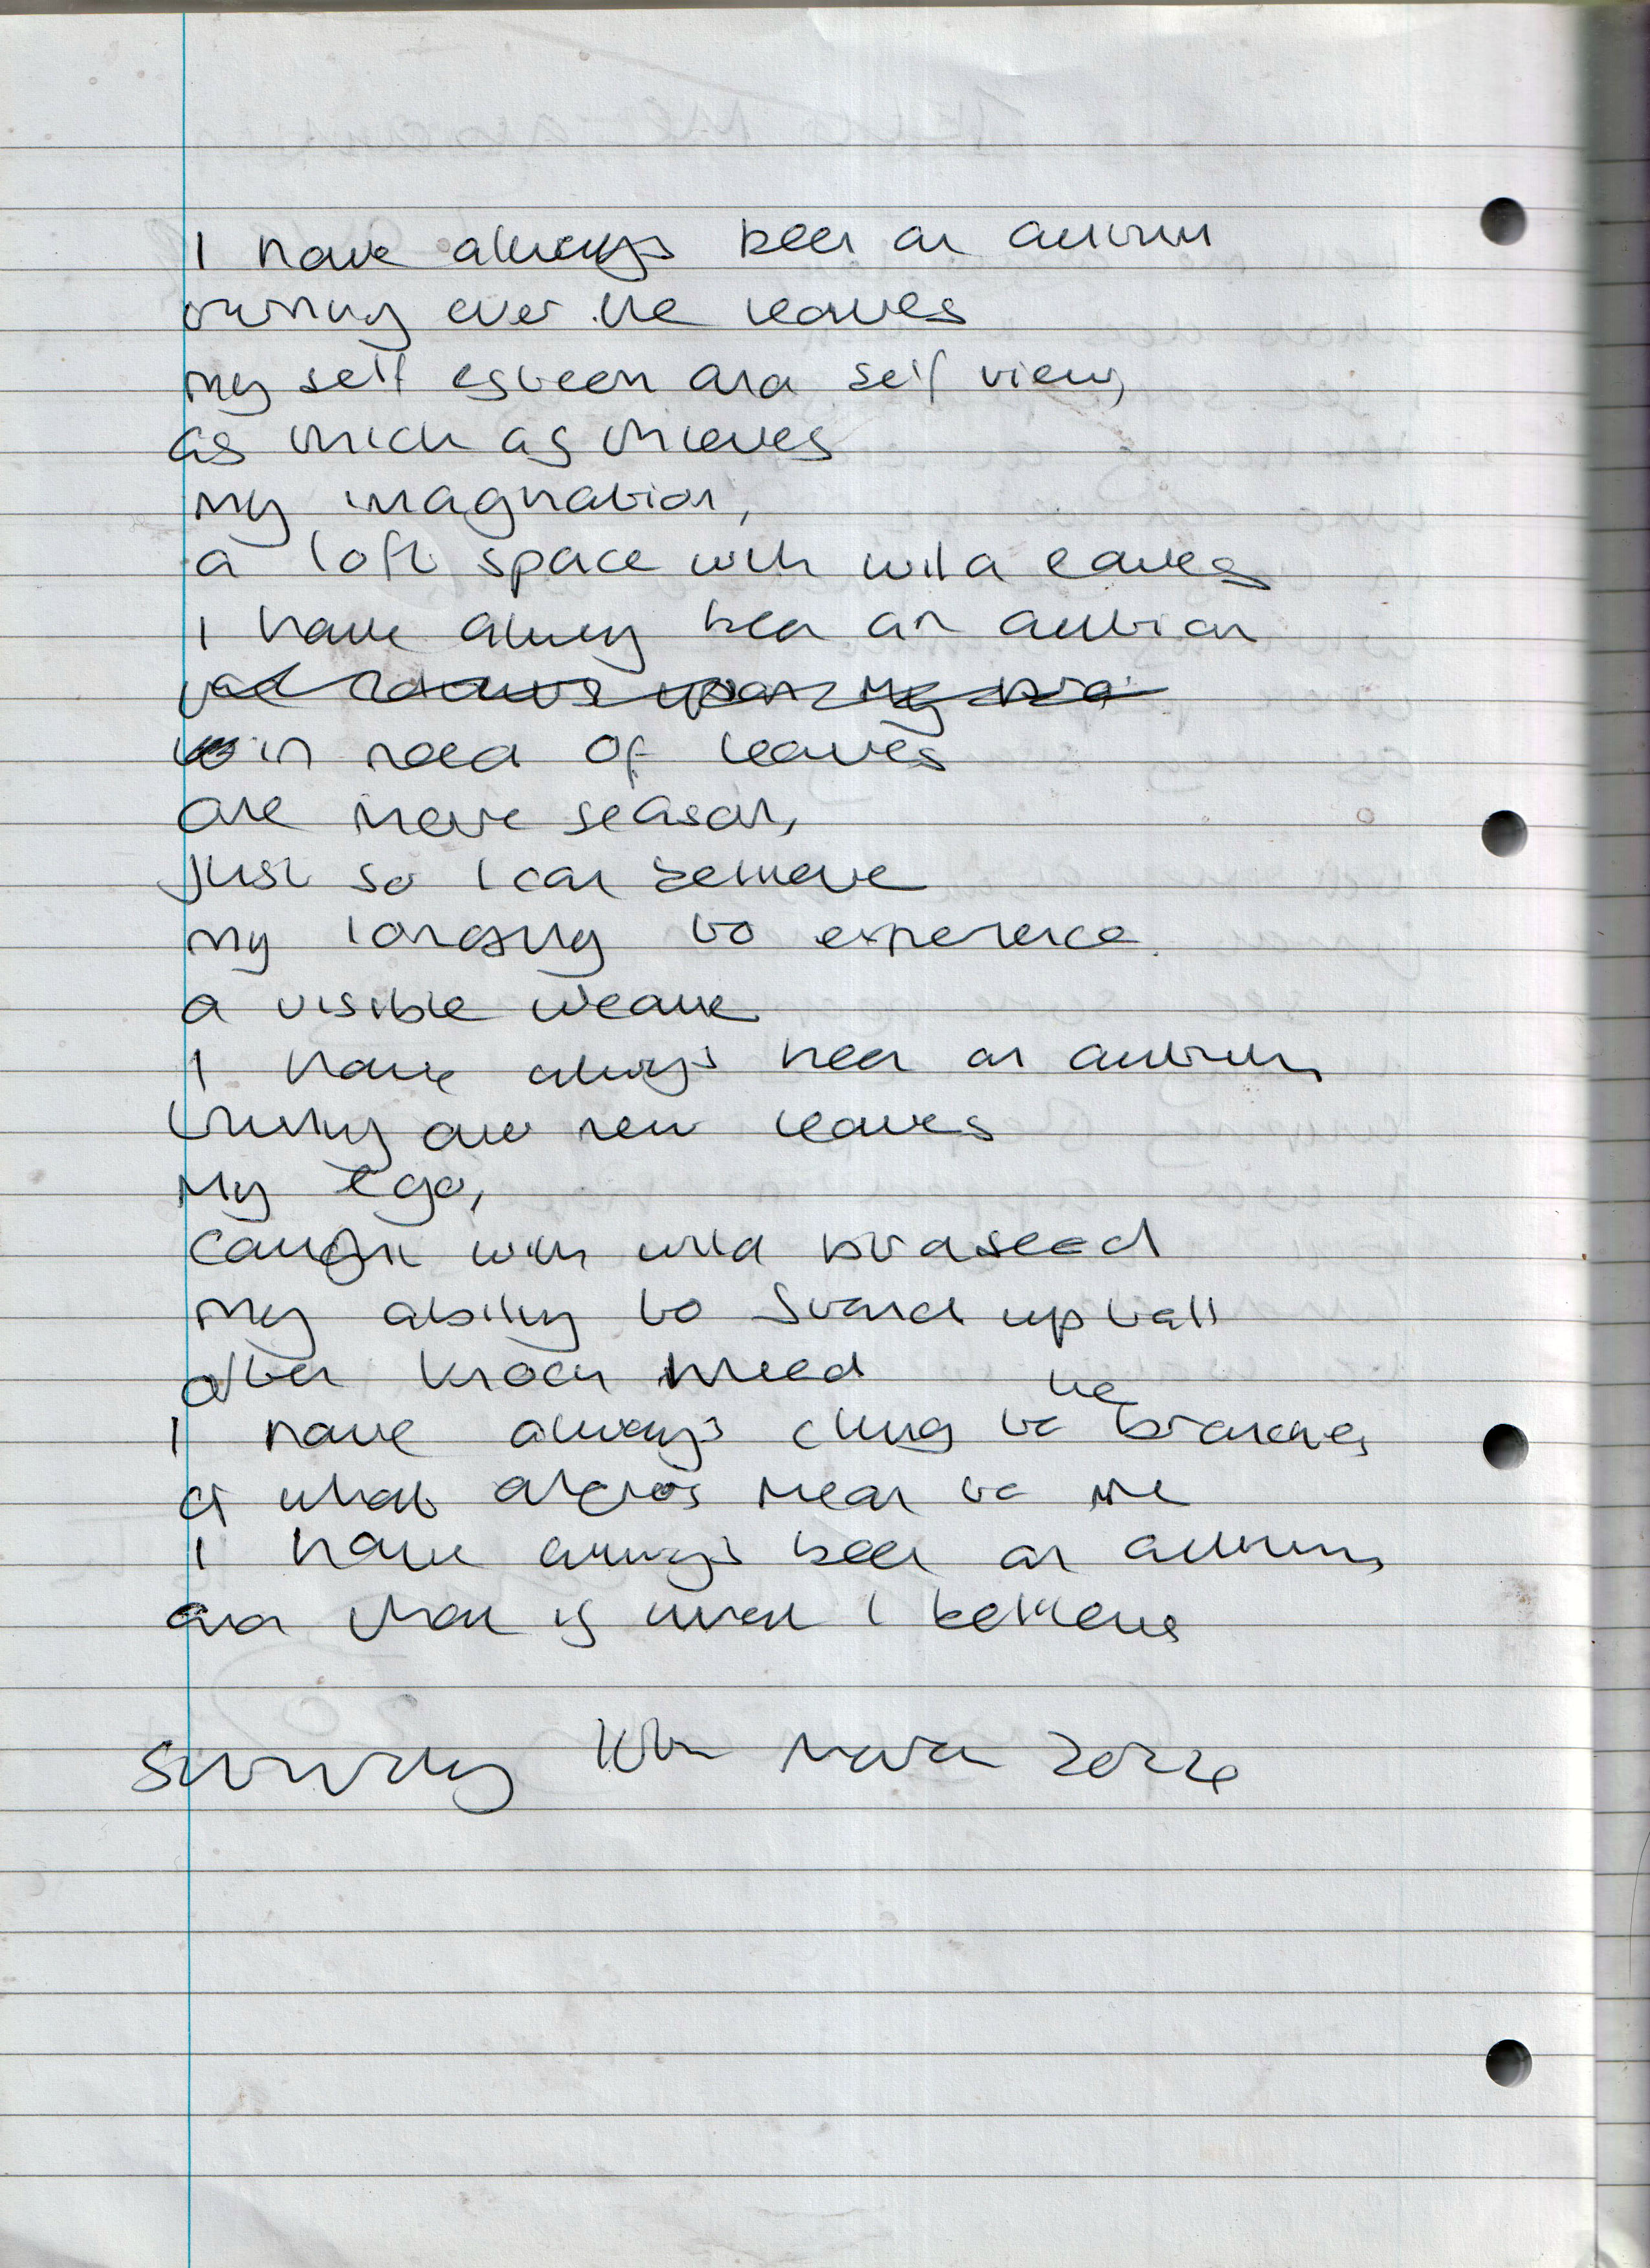 I have always been an autumn
turning over the leaves
my self esteem and self view,
as thick as thieves
my imagination,
a loft space with wild eaves
I have always been an autumn
in need of leaves
one more season,
just so I can believe
my longing to experience
a visible weave
I have always been an autumn,
turning over new leaves
My ego,
caught with wild birdseed
my ability to stand up tall
after knock kneed
I have always clung to the branches
of what others mean to me
I have always been an autumn,
and that is what I believe
Sunday 10th March 2024